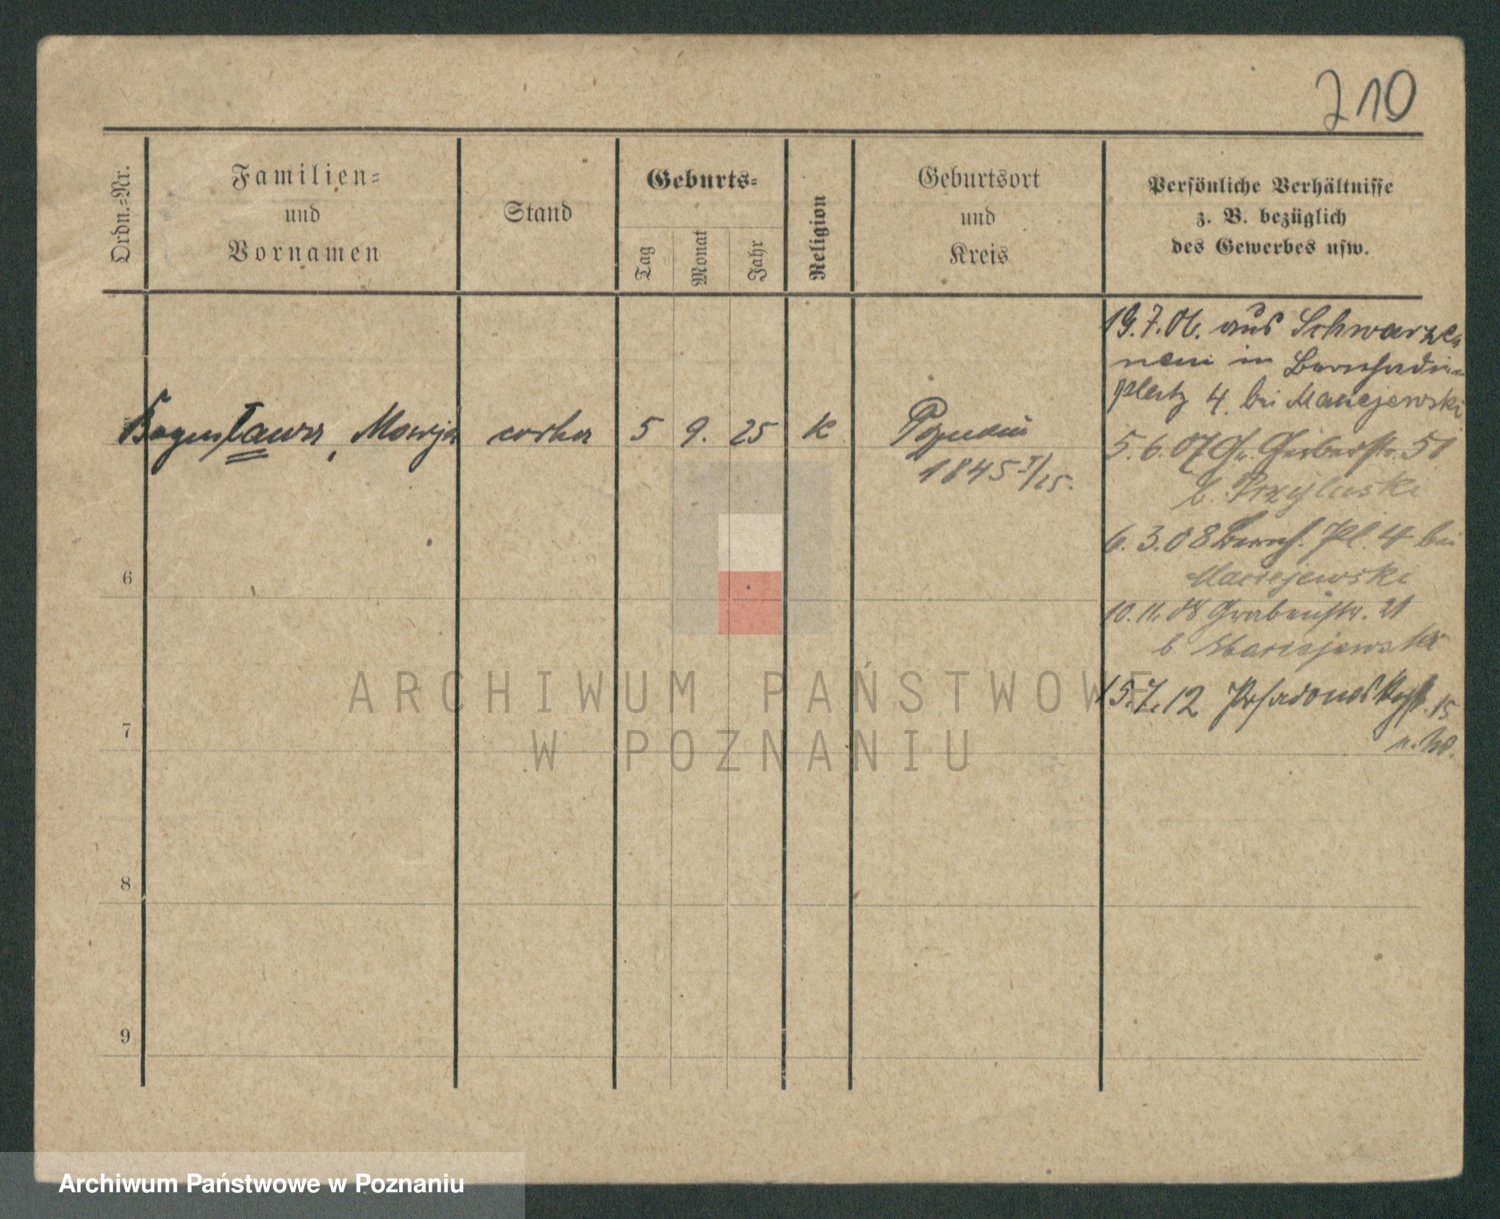 210
Ordn.-Nr.
Familien-
und
Vornamen
Stand
Geburts-
Tag
Monat
Jahr
Religion
Geburtsort
und
Kreis
Persönliche Verhältnisse
z. B. bezüglich
des Gewerbes usw.
Bogusława, Marja córka 5 9. 25 K Poznań
1845 I/25.
19.7.06. aus Schwarze-
nau in Bernhardin
platz 4. bei Maciejewski
5.6.07 Gr. Gerberstr. 51
b. Przyluski
6.3.08 Bernh. Pl. 4 bei
Maciejewski
10.11.08 Grabenstr. 21
b. Maciejewski
15.7.12 15
6
7
8
9
ARCHIWUM PAŃSTWOWE
W POZNANIU
Archiwum Państwowe w Poznaniu